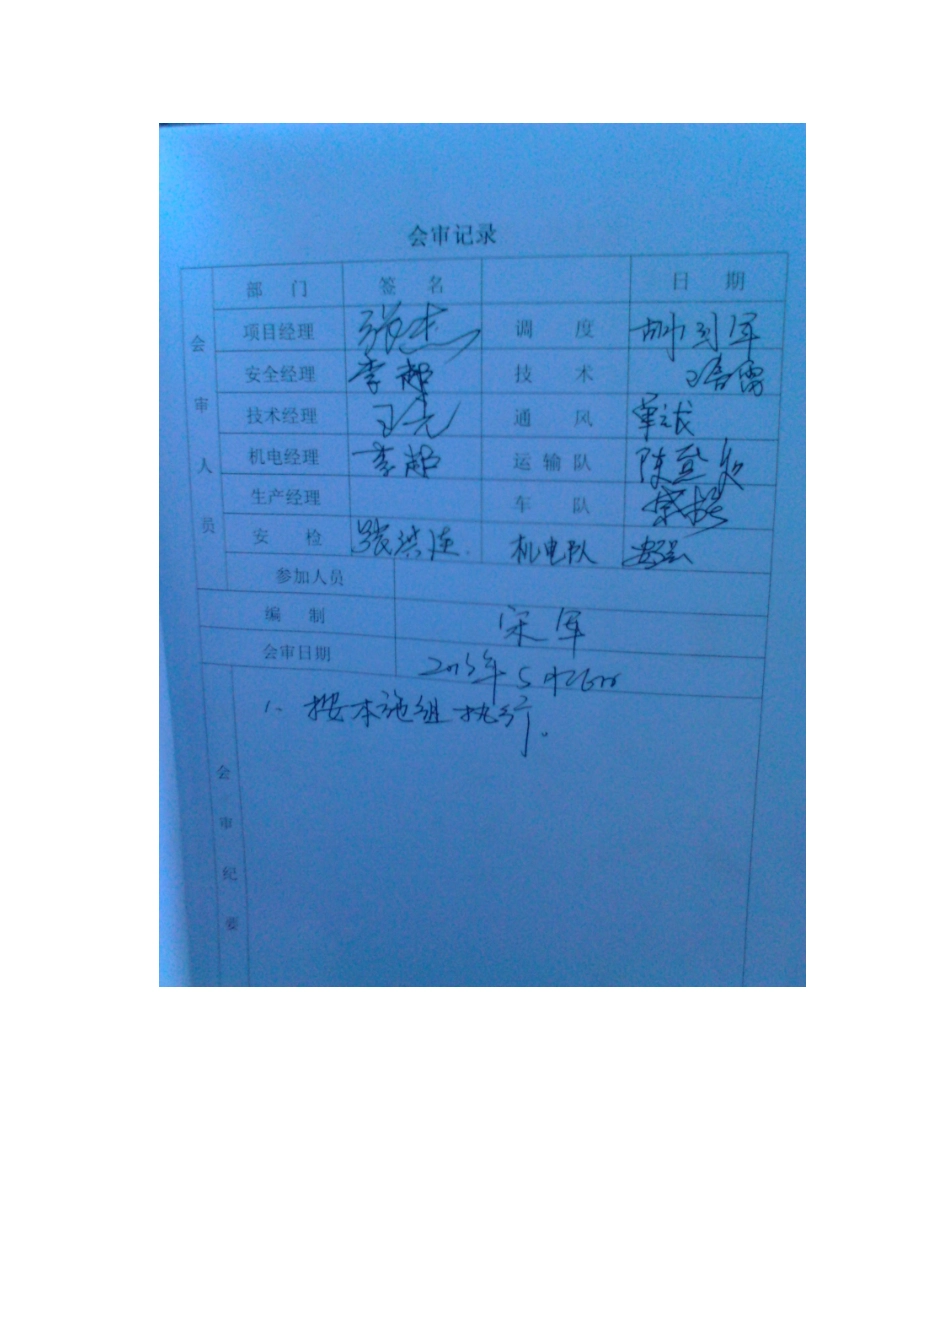 会审记录
部 门 签 名 日 期
项目经理 张杰 调 度
安全经理 李超 技 术
技术经理 王元 通 风
机电经理 李超 运输队
生产经理 车 队
安 检 张洪连 机电队
参加人员
编 制 宋军
会审日期 2013年5月26日
会审人员
1、按本施组执行。
会审纪要